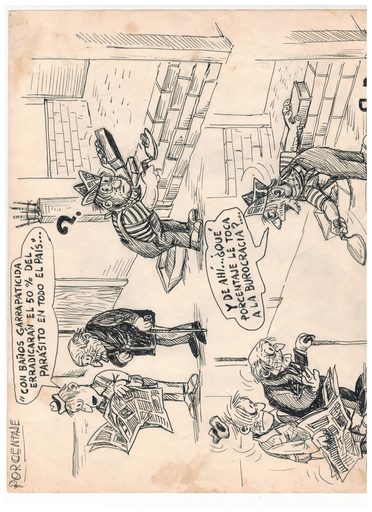 PORCENTAJE
"CON BAÑOS GARRAPATICIDA
ERRADICARÁN EL 50 % DEL
PARÁSITO EN TODO EL PAÍS...
?
Y DE AHÍ...¿QUE
PORCENTAJE LE TOCA
A LA BUROCRACIA?...